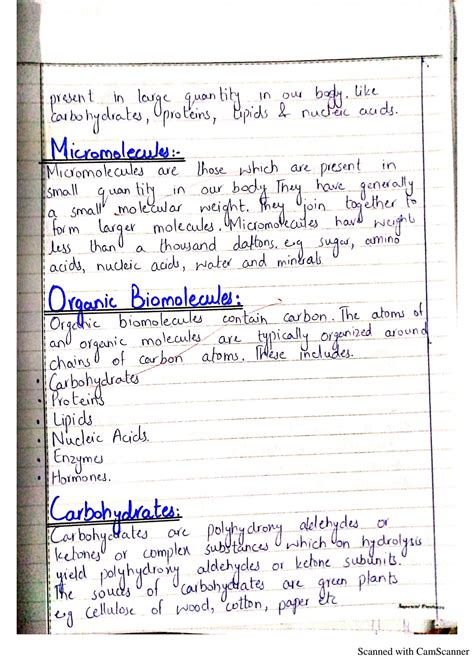 present in large quantity in our body. like
carbohydrates, proteins, lipids & nucleic acids.
Micromolecules:-
Micromolecules are those which are present in
small quantity in our body They have generally
a small molecular weight. They join together to
form larger molecules. Micromolecules have weight
less than a thousand daltons. e.g sugar, amino
acids, nucleic acids, water and minerals
Organic Biomolecules:
Organic biomolecules contain carbon. The atoms of
an organic molecules are typically organized around
chains of carbon atoms. These includes.
• Carbohydrates
• Proteins
• Lipids
• Nucleic Acids.
• Enzymes
• Hormones.
Carbohydrates:
Carbohydrates are polyhydrony aldehydes or
ketones or complex substances which on hydrolysis
yield polyhydrony aldehydes or ketone subunits.
The souces of carbohydrates are green plants
e.g cellulose of wood, cotton, paper etc
Scanned with CamScanner